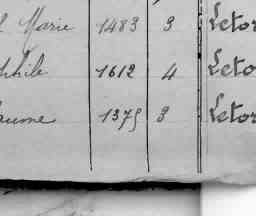 Marie 1483 3 Letor
phile 1612 4 Letor
aume 1375 3 Letor